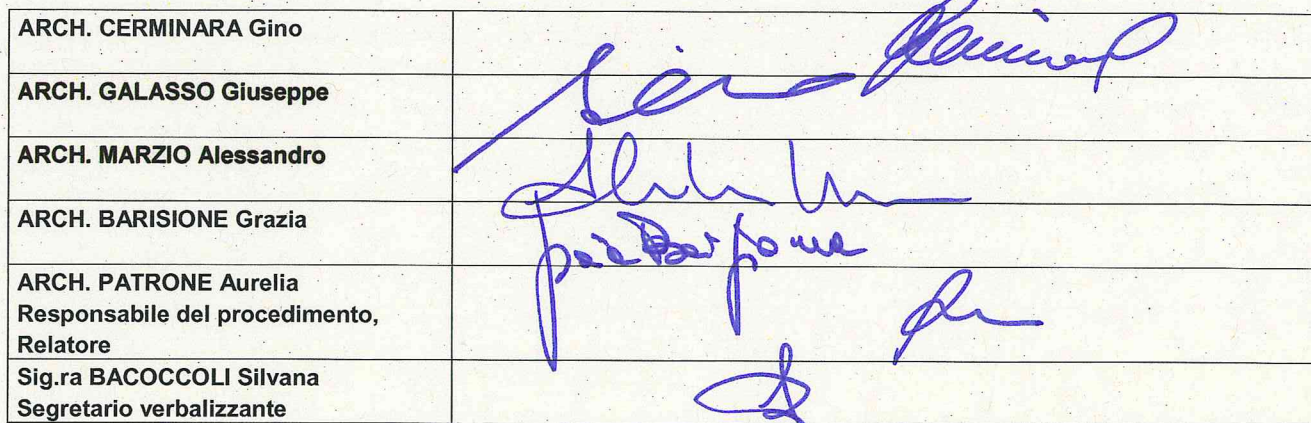 ARCH. CERMINARA Gino
ARCH. GALASSO Giuseppe
ARCH. MARZIO Alessandro
ARCH. BARISIONE Grazia
ARCH. PATRONE Aurelia
Responsabile del procedimento,
Relatore
Sig.ra BACOCCOLI Silvana
Segretario verbalizzante